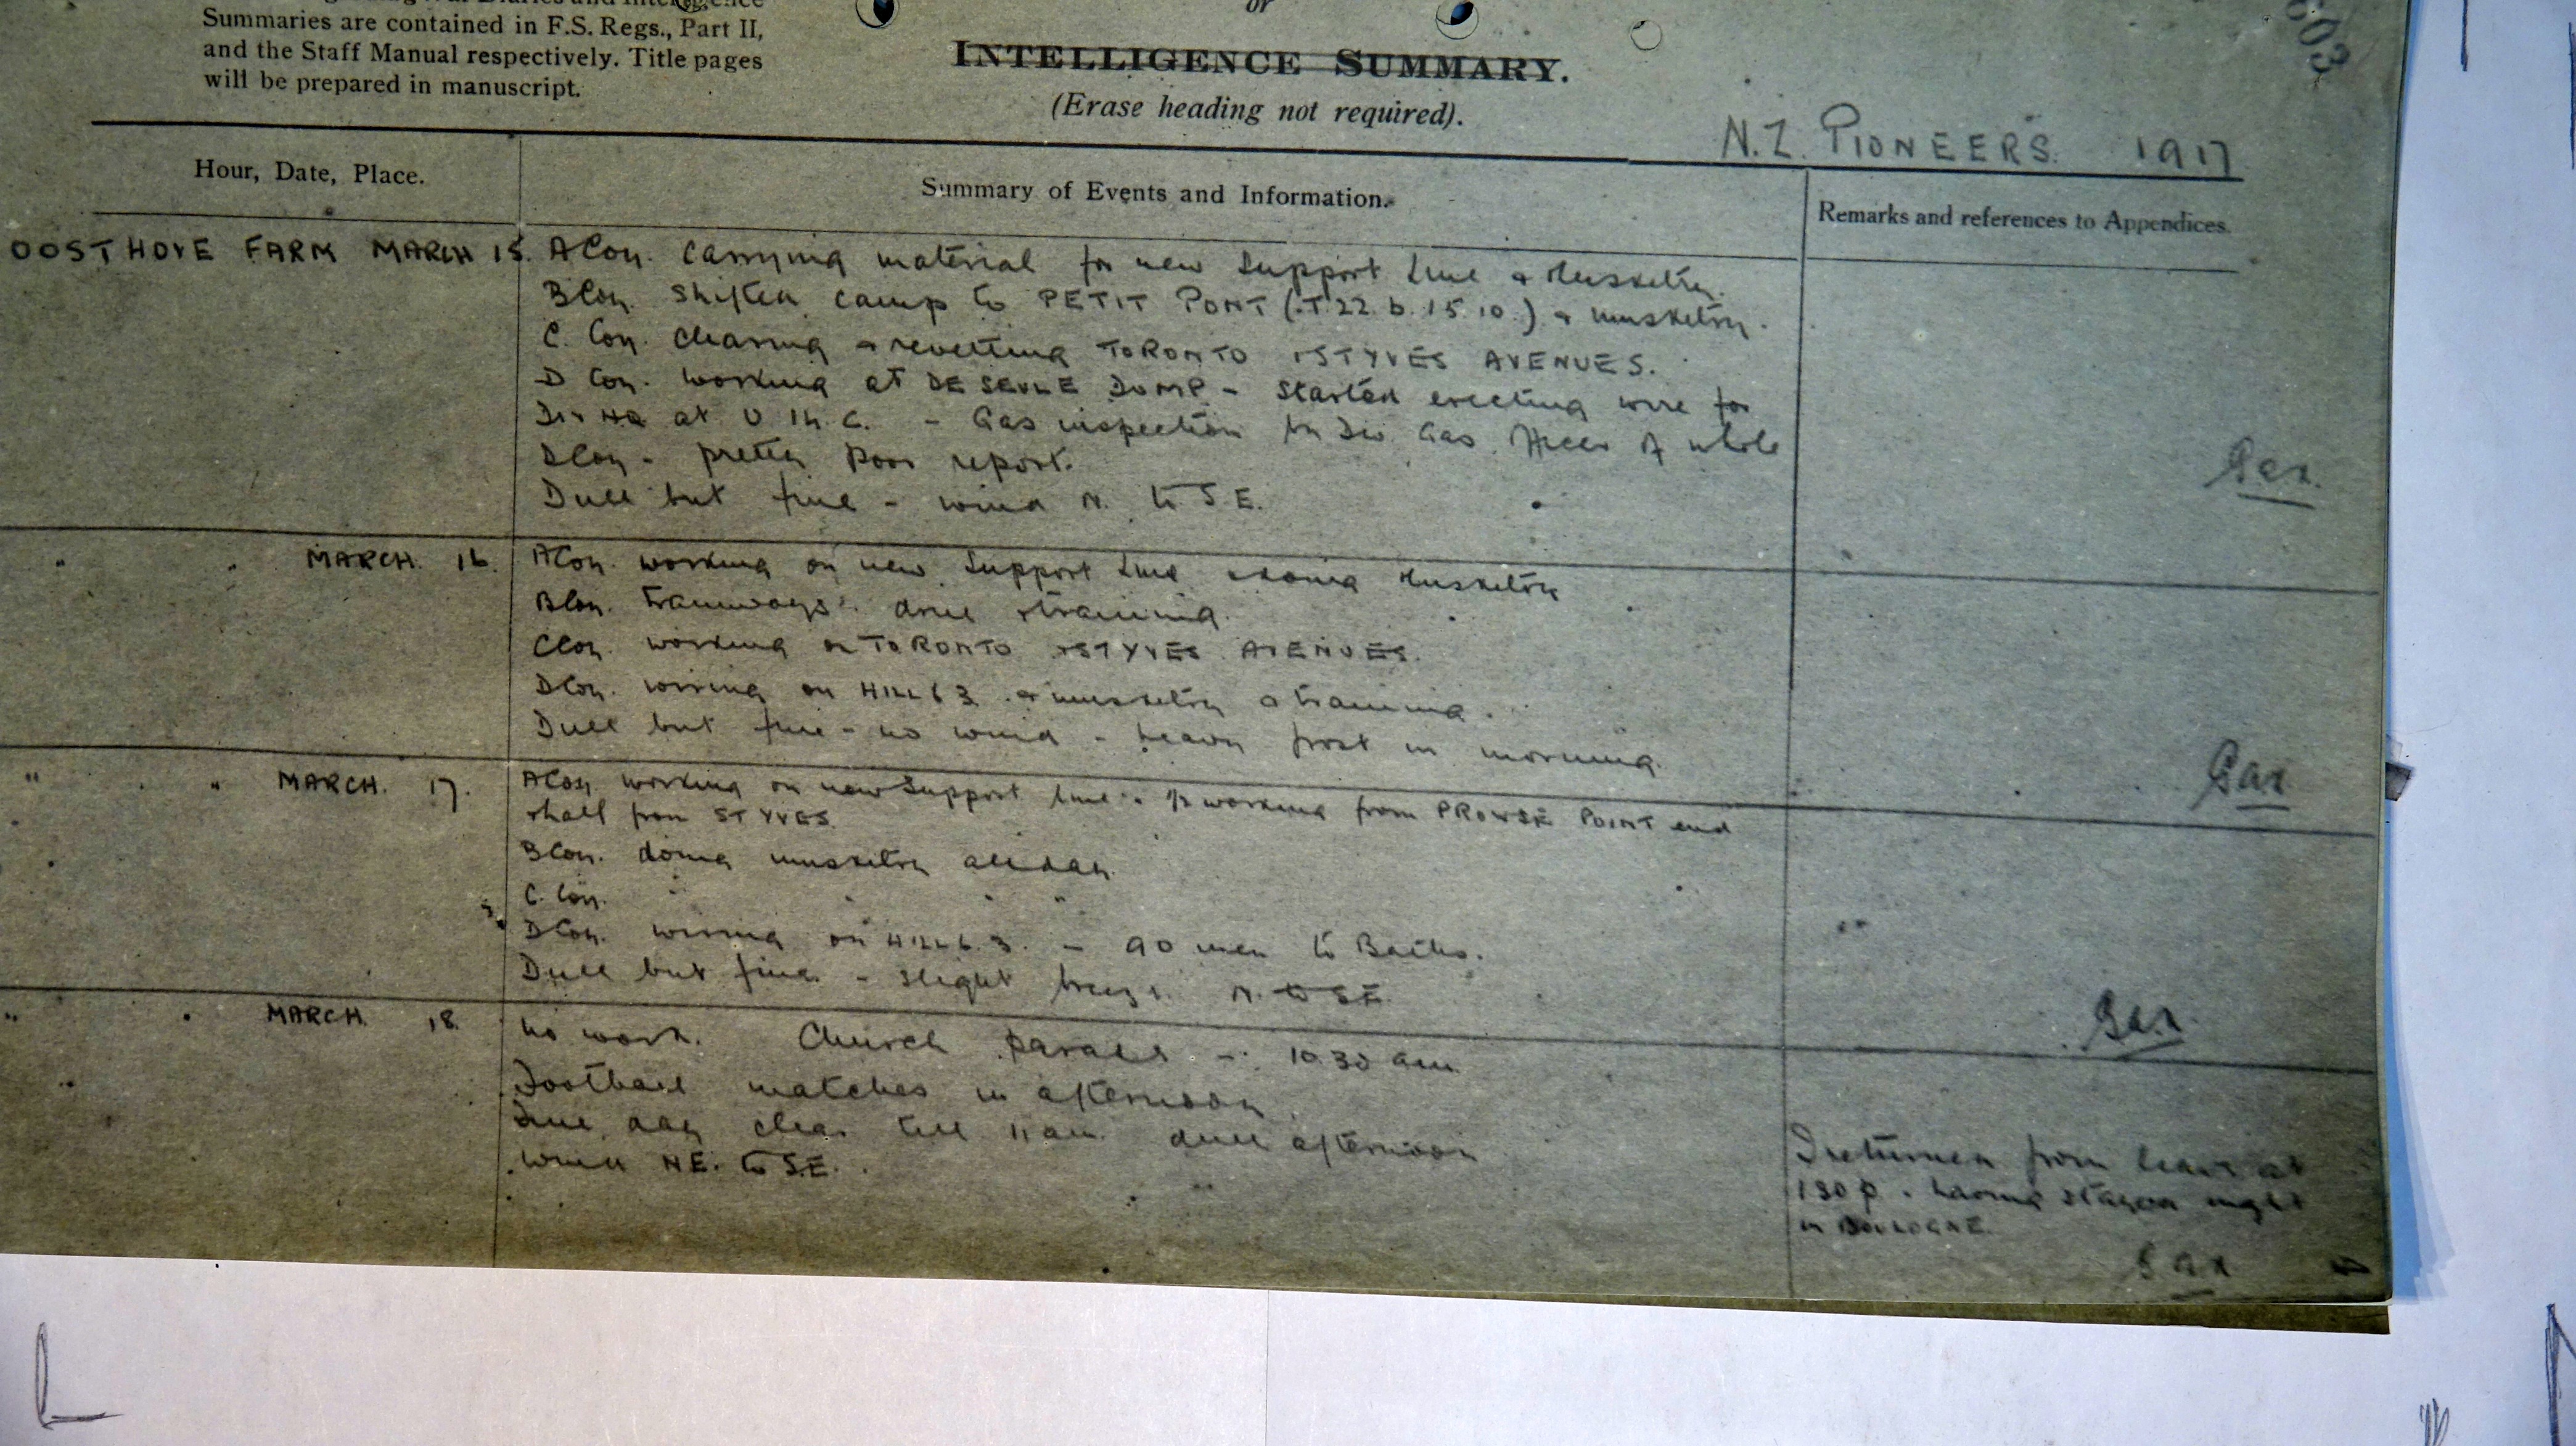 Summaries are contained in F.S. Regs., Part II,
and the Staff Manual respectively. Title pages
will be prepared in manuscript.
or
INTELLIGENCE SUMMARY.
(Erase heading not required).
N.Z. PIONEERS. 1917
Hour, Date, Place.
Summary of Events and Information.
Remarks and references to Appendices.
OOSTHOVE FARM MARCH 15.
A Coy. carrying material for new Support Line & Musketry.
B Coy. shifted camp to PETIT PONT (T.22.b.15.10.) & musketry.
C. Coy. clearing & revetting TORONTO & ST YVES AVENUES.
D Coy. working at DE SEULE DUMP - started erecting wire for
Div HQ at - Gas inspection by Div Gas Officer of whole
D Coy - pretty poor report.
Dull but fine - wind N. to S.E.
" " MARCH. 16.
A Coy. working on new Support Line & doing Musketry
B Coy. Tramways. drill & training.
C Coy. working on TORONTO & ST YVES AVENUES.
D Coy. wiring on HILL 63. & musketry & training.
Dull but fine - no wind - heavy frost in morning.
" " MARCH. 17.
A Coy. working on new Support Line - 1/2 working from PROWSE POINT end
& half from ST YVES.
B Coy. doing musketry all day.
C. Coy. " " " "
D Coy. wiring on HILL 63. - 90 men to Baths.
Dull but fine - slight breeze N. to SE.
" " MARCH. 18.
No work. Church parade - 10.30 am.
Football matches in afternoon.
Fine day clear till 11 am. dull afternoon
wind NE. to S.E.
I returned from leave at
130 p. having stayed night
in BOULOGNE.